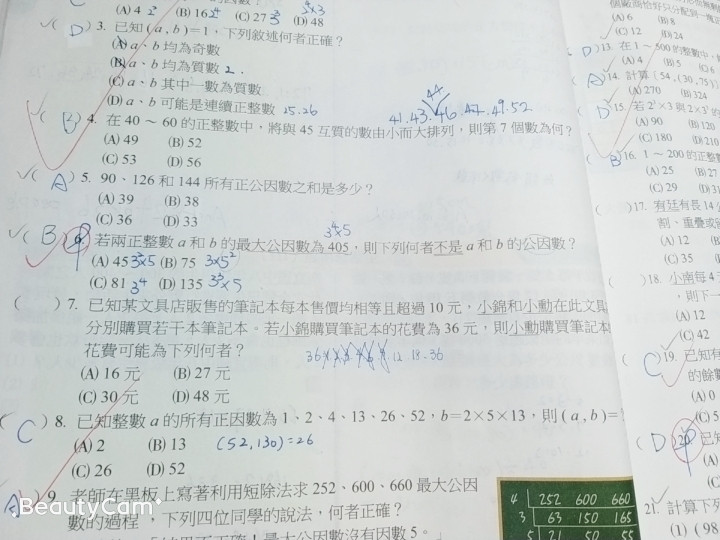 (A) 4 (B) 16 (C) 27 (D) 48
(D) 3. 已知(a,b)=1,下列敘述何者正確?
(A) a、b均為奇數
(B) a、b均為質數 2.
(C) a、b其中一數為質數
(D) a、b可能是連續正整數 25.26
41.43.46.47.49.52
44
(B) 4. 在40~60的正整數中,將與45互質的數由小而大排列,則第7個數為何?
(A) 49 (B) 52
(C) 53 (D) 56
(A) 5. 90、126和144所有正公因數之和是多少?
(A) 39 (B) 38
(C) 36 (D) 33
3⁴x5
(B) 6. 若兩正整數a和b的最大公因數為405,則下列何者不是a和b的公因數?
(A) 45 3²x5 (B) 75 3x5²
(C) 81 3⁴ (D) 135 3³x5
( ) 7. 已知某文具店販售的筆記本每本售價均相等且超過10元,小錦和小勳在此文
分別購買若干本筆記本。若小錦購買筆記本的花費為36元,則小勳購買筆記本
花費可能為下列何者? 12.18.36
(A) 16元 (B) 27元
(C) 30元 (D) 48元
(C) 8. 已知整數a的所有正因數為1、2、4、13、26、52,b=2×5×13,則(a,b)=
(A) 2 (B) 13 (52,130)=26
(C) 26 (D) 52
(A) 9. 老師在黑板上寫著利用短除法求252、600、660最大公因
數的過程,下列四位同學的說法,何者正確?
最大公因數沒有因數5。」
4 252 600 660
3 63 150 165
5 21 50 55
(A) 6 (B) 8
(C) 12 (D) 24
(D) 13. 在1~500的整數中,
(A) 4 (B) 5 (C) 6
(A) 14. 計算(54,(30,75))
(A) 270 (B) 324
(D) 15. 若2²×3與2×3²
(A) 90 (B) 120
(C) 180 (D) 210
(B) 16. 1~200的正整數
(A) 25 (B) 27
(C) 29 (D) 3
( ) 17. 有廷有長14
割、重疊或
(A) 12 (B)
(C) 35 (D)
( ) 18. 小南每4
,則下一
(A) 12
(C) 42
(C) 19. 已知有
的餘數
(A) 0
(C) 5
(D) 20. 已知
(A)
(C)
21. 計算下列
(1) (98
BeautyCam